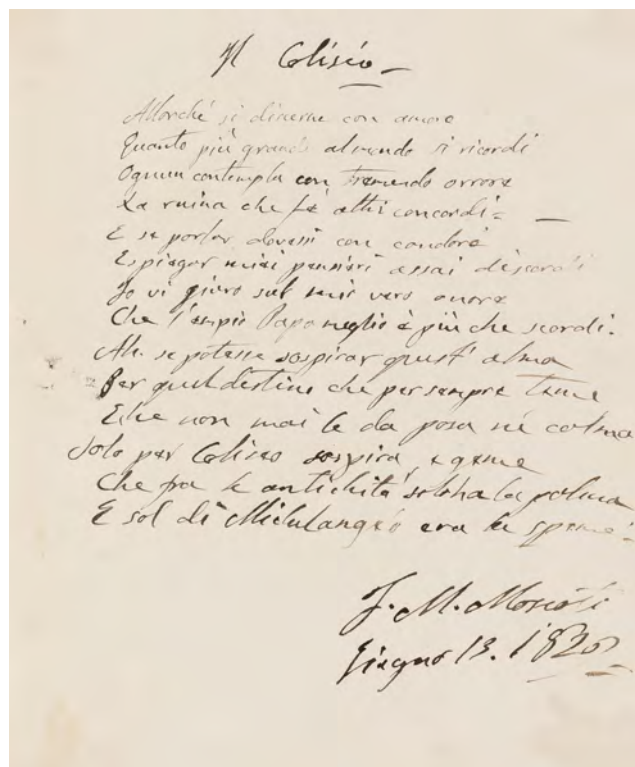 Il Coliseo
Allorché si discerne con amore
Quanto più grande al mondo si ricordi
Ognun contempla con tremendo orrore
La ruina che fè atti concordi=
E se parlar dovessi con candore
E spiegar miei pensieri assai discordi
Io vi giuro sul mio vero onore
Che l'empio Papa meglio è più che scordi.
Ah. se potesse sospirar quest'alma
Per quel destino che per sempre teme
E che non mai le da posa né calma
Solo per Coliseo sospira, e geme
Che fra le antichità sol ha la palma
E sol di Michelangeo era la speme
J. M.
Giugno 13. 1820